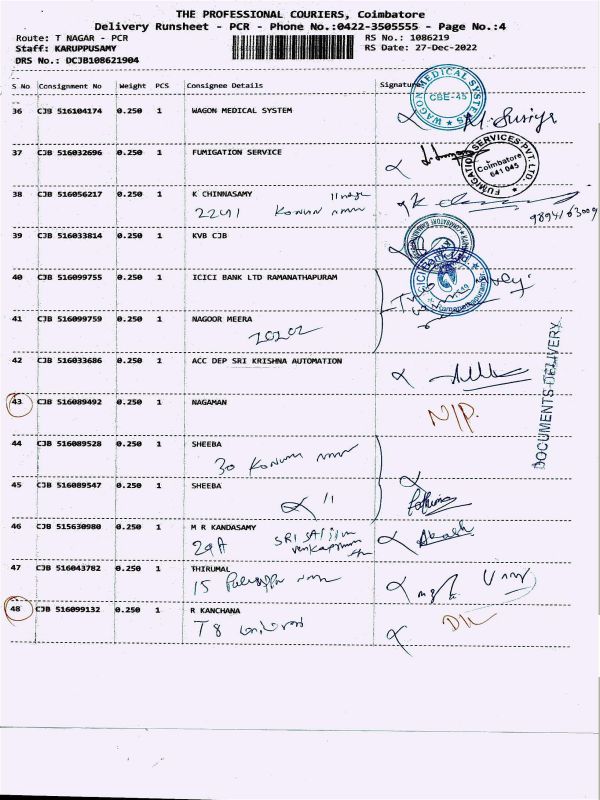 THE PROFESSIONAL COURIERS, Coimbatore
Delivery Runsheet - PCR - Phone No.:0422-3505555 - Page No.:4
Route: T NAGAR - PCR RS No.: 1086219
Staff: KARUPPUSAMY RS Date: 27-Dec-2022
DRS No.: DCJB108621904
S No Consignment No Weight PCS Consignee Details Signature
36 CJB 516104174 0.250 1 WAGON MEDICAL SYSTEM
WAGON MEDICAL SYSTEMS
CBE-45
37 CJB 516032696 0.250 1 FUMIGATION SERVICE
FUMIGATION SERVICES PVT. LTD.
Coimbatore
641 045
38 CJB 516056217 0.250 1 K CHINNASAMY
39 CJB 516033814 0.250 1 KVB CJB
40 CJB 516099755 0.250 1 ICICI BANK LTD RAMANATHAPURAM
ICICI Bank Ltd.
41 CJB 516099759 0.250 1 NAGOOR MEERA
42 CJB 516033686 0.250 1 ACC DEP SRI KRISHNA AUTOMATION
43 CJB 516089492 0.250 1 NAGAMAN
N/P.
DOCUMENTS DELIVERY
44 CJB 516089528 0.250 1 SHEEBA
30
45 CJB 516089547 0.250 1 SHEEBA
46 CJB 515630980 0.250 1 M R KANDASAMY
29A SRI
47 CJB 516043782 0.250 1 THIRUMAL
15
48 CJB 516099132 0.250 1 R KANCHANA
T8